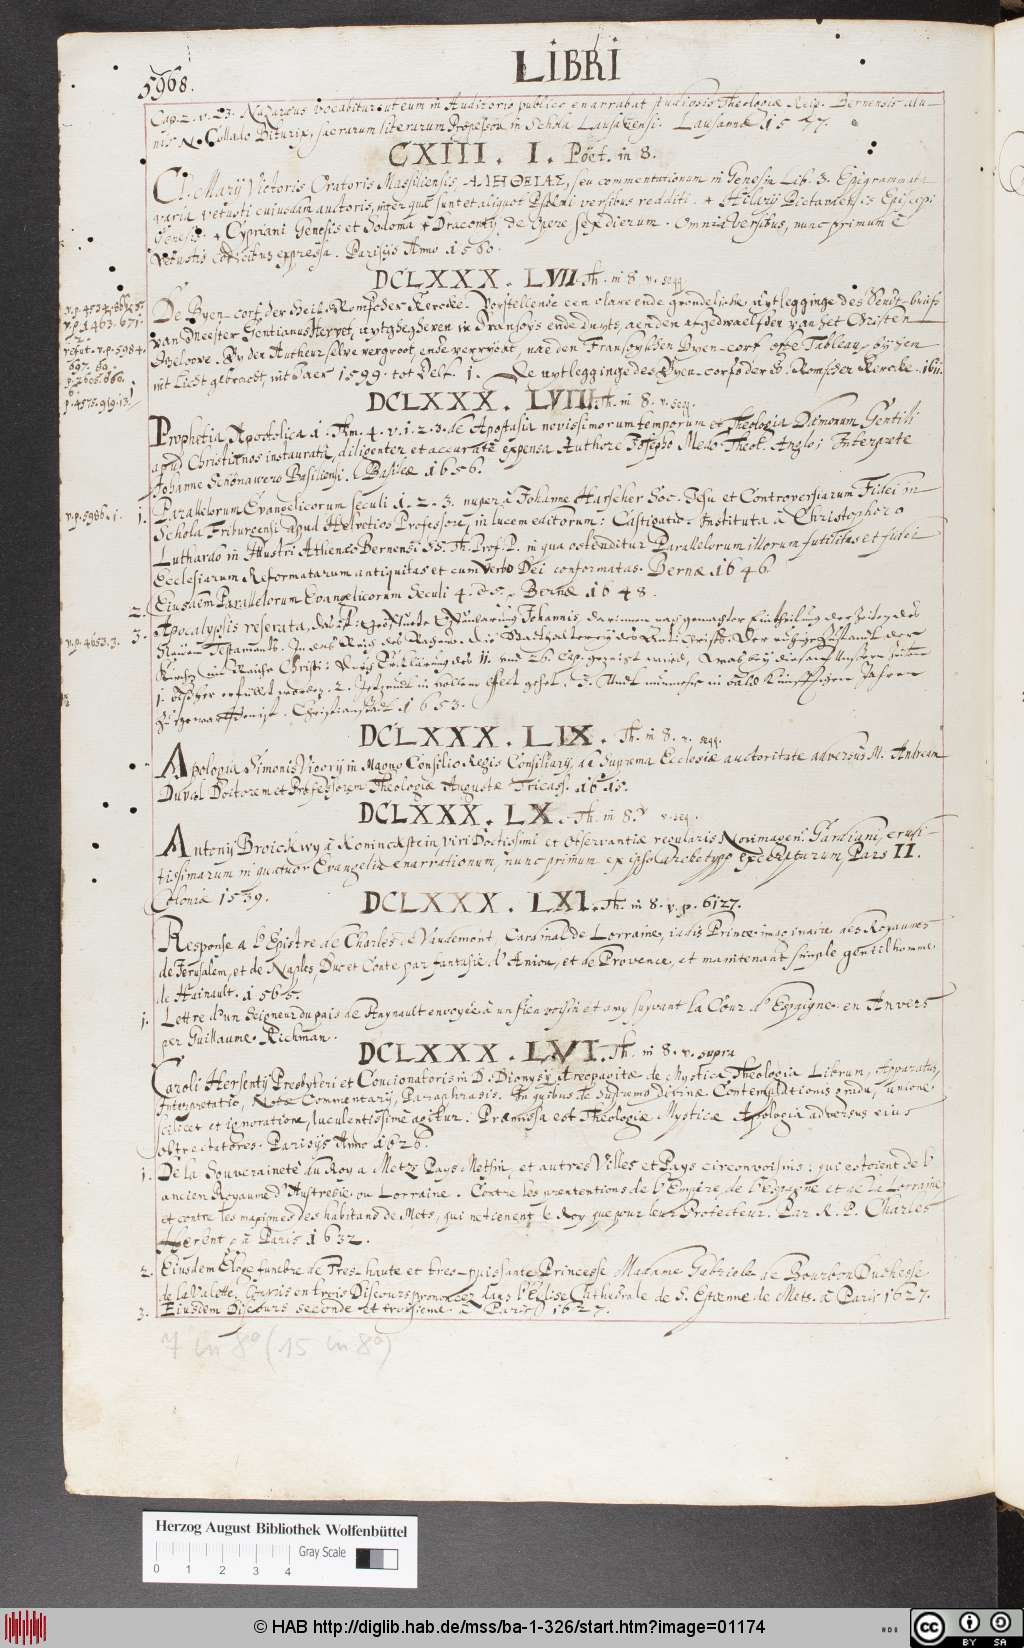 LIBRI
5968.
Cap. 2. v. 23. Nazaraeus vocabitur: ut eum in Auditorio publico enarrabat studiosis Theologiae Reip. Bernensis alu-
nis N. Collado Biturix, sacrarum literarum Professor in Schola Lausanensi. Lausannae 1577.
CXIII. I. Poët. in 8.
Cl. Marij Victoris Oratoris Massiliensis, ΑΛΗΘΕΙΑΣ, seu commentationum in Genesin Lib. 3. Epigrammata
varia vetusti cuiusdam auctoris, inter quae sunt et aliquot Psalmi versibus redditi. + Hilarij Pictaviensis Episcopi
Genesis. + Cypriani Genesis et Sodoma + Dracontij de Opere sex dierum. Omnia versibus, nunc primum è
vetustis codicibus expressa. Parisijs Anno 1560.
DCLXXX. LVII. Th. in 8. v. seqq.
v. p. 4534. 866.
v. p. 1463. 671.
refut. v. p. 5984.
p. 4575. 919. 13.
De Byen-corf der Heil. Romscher Kercke. Vorstellende een clare ende grondelicke uytlegginge des Sendt-briefs
van Meester Gentianus Hervet, uytghegheven in Fransoys ende duyts, aen den afgedwaelsden van het Christen
Gheloove. By den Autheur selve vergroot, ende verryckt, nae den Fransoyschen Byen-corf ofte Tableau by hem
int Licht gebracht, int Jaer 1599. tot Delf. 1. De uytlegginge des Byen-corfs der H. Romscher Kercke. ibid.
DCLXXX. LVIII. Th. in 8. v. seqq.
Prophetia Apostolica 1. Tim. 4. v. 1. 2. 3. de Apostasia novissimorum temporum et Theologia Daemonum Gentili
apud Christianos instaurata, diligenter et accuratè expensa Authore Josepho Medo Theol. Anglo; Interprete
Johanne Schönawero Basiliensi. Basileae 1656.
v. p. 5986. 1.
1. Parallelorum Evangelicorum seculi 1. 2. 3. nuper à Johanne Harscher Soc. Jesu et Controversiarum Fidei in
Schola Friburgensi apud Helvetios Professore, in lucem editorum: Castigatio. Instituta à Christophoro
Luthardo in Illustri Athenaeo Bernensi SS. Th. Prof. P. in qua ostenditur Parallelorum illorum futilitas et fidei
Ecclesiarum Reformatarum antiquitas et cum verbo Dei conformatas. Bernae 1646.
2. Eiusdem Parallelorum Evangelicorum Seculi 4. et 5. Bernae 1648.
v. p. 4653. 3.
3. Apocalypsis reserata, das ist: geöffnete Offenbarung Johannis, darinnen nach gemachter Eintheilung der Zeiten des
Neuen Testaments
1. bißher erfüllet worden. 2. Jetzund in vollem schwang gehet. 3. Undt nunmehr in bald künfftigen Jahren
zugewarten ist. Christianstadt 1653.
DCLXXX. LIX. Th. in 8. v. seqq.
Apologia Simonis Vigorij in Magno Consilio Regis Consiliarij, de Suprema Ecclesiae auctoritate adversus M. Andream
Duval Doctorem et Professorem Theologiae. Augustae Tricass. 1615.
DCLXXX. LX. Th. in 8. v. seq.
Antonij Broickwy à Koninckstein viri Doctissimi et observantiae regularis Novimagen. Gardiani, erudi-
tissimarum in quatuor Evangelia enarrationum, nunc primum ex ipso archetypo excusarum, Pars II.
Coloniae 1539.
DCLXXX. LXI. Th. in 8. v. p. 6127.
Response a l'Epistre de Charles de Vaudemont Cardinal de Lorraine, iadis Prince imaginaire des Royaumes
de Jerusalem, et de Naples, Duc et Conte par fantasie d'Aniou, et de Provence, et maintenant simple gentilhomme
de Hainault. 1565.
1. Lettre d'un Seigneur du pais de Haynault envoyée à un sien voisin et amy suyvant la Cour d'Espaigne. en Anvers
per Guillaume Richman.
DCLXXX. LVI. Th. in 8. v. supra
Caroli Hersentij Presbyteri et Concionatoris in D. Dionysij Areopagitae de Mystica Theologia Librum, Apparatus,
Interpretatio, Notae Commentarij, Paraphrasis. In quibus de Supremo divinae Contemplationis gradu, unione
scilicet et ignoratione, luculentissimè agitur. Praemissa est Theologiae Mysticae Apologia adversus eius
obtrectatores. Parisijs Anno 1626.
1. De la Souveraineté du Roy a Metz, Pays Metsin, et autres Villes et Pays circonvoisins: qui estoient de l'
ancien Royaume d'Austresie ou Lorraine. Contre les pretentions de l'Empire, de l'Espagne et de la Lorraine
et contre les maximes des habitans de Mets, qui ne tienent le Roy que pour leur Protecteur. Par R. P. Charles
Hersent, à Paris 1632.
2. Eiusdem Eloge funebre de Tres-haute et tres-puissante Princesse Madame Gabriele de Bourbon Duchesse
de la Valette, Compris en trois Discours prononcez dans l'Eglise Cathedrale de S. Estienne de Mets. à Paris 1627.
3. Eiusdem Discours seconde et troisieme. à Paris 1627.
7 in 8° (15 in 8°)
Herzog August Bibliothek Wolfenbüttel
Gray Scale
0 1 2 3 4
© HAB http://diglib.hab.de/mss/ba-1-326/start.htm?image=01174
cc BY SA